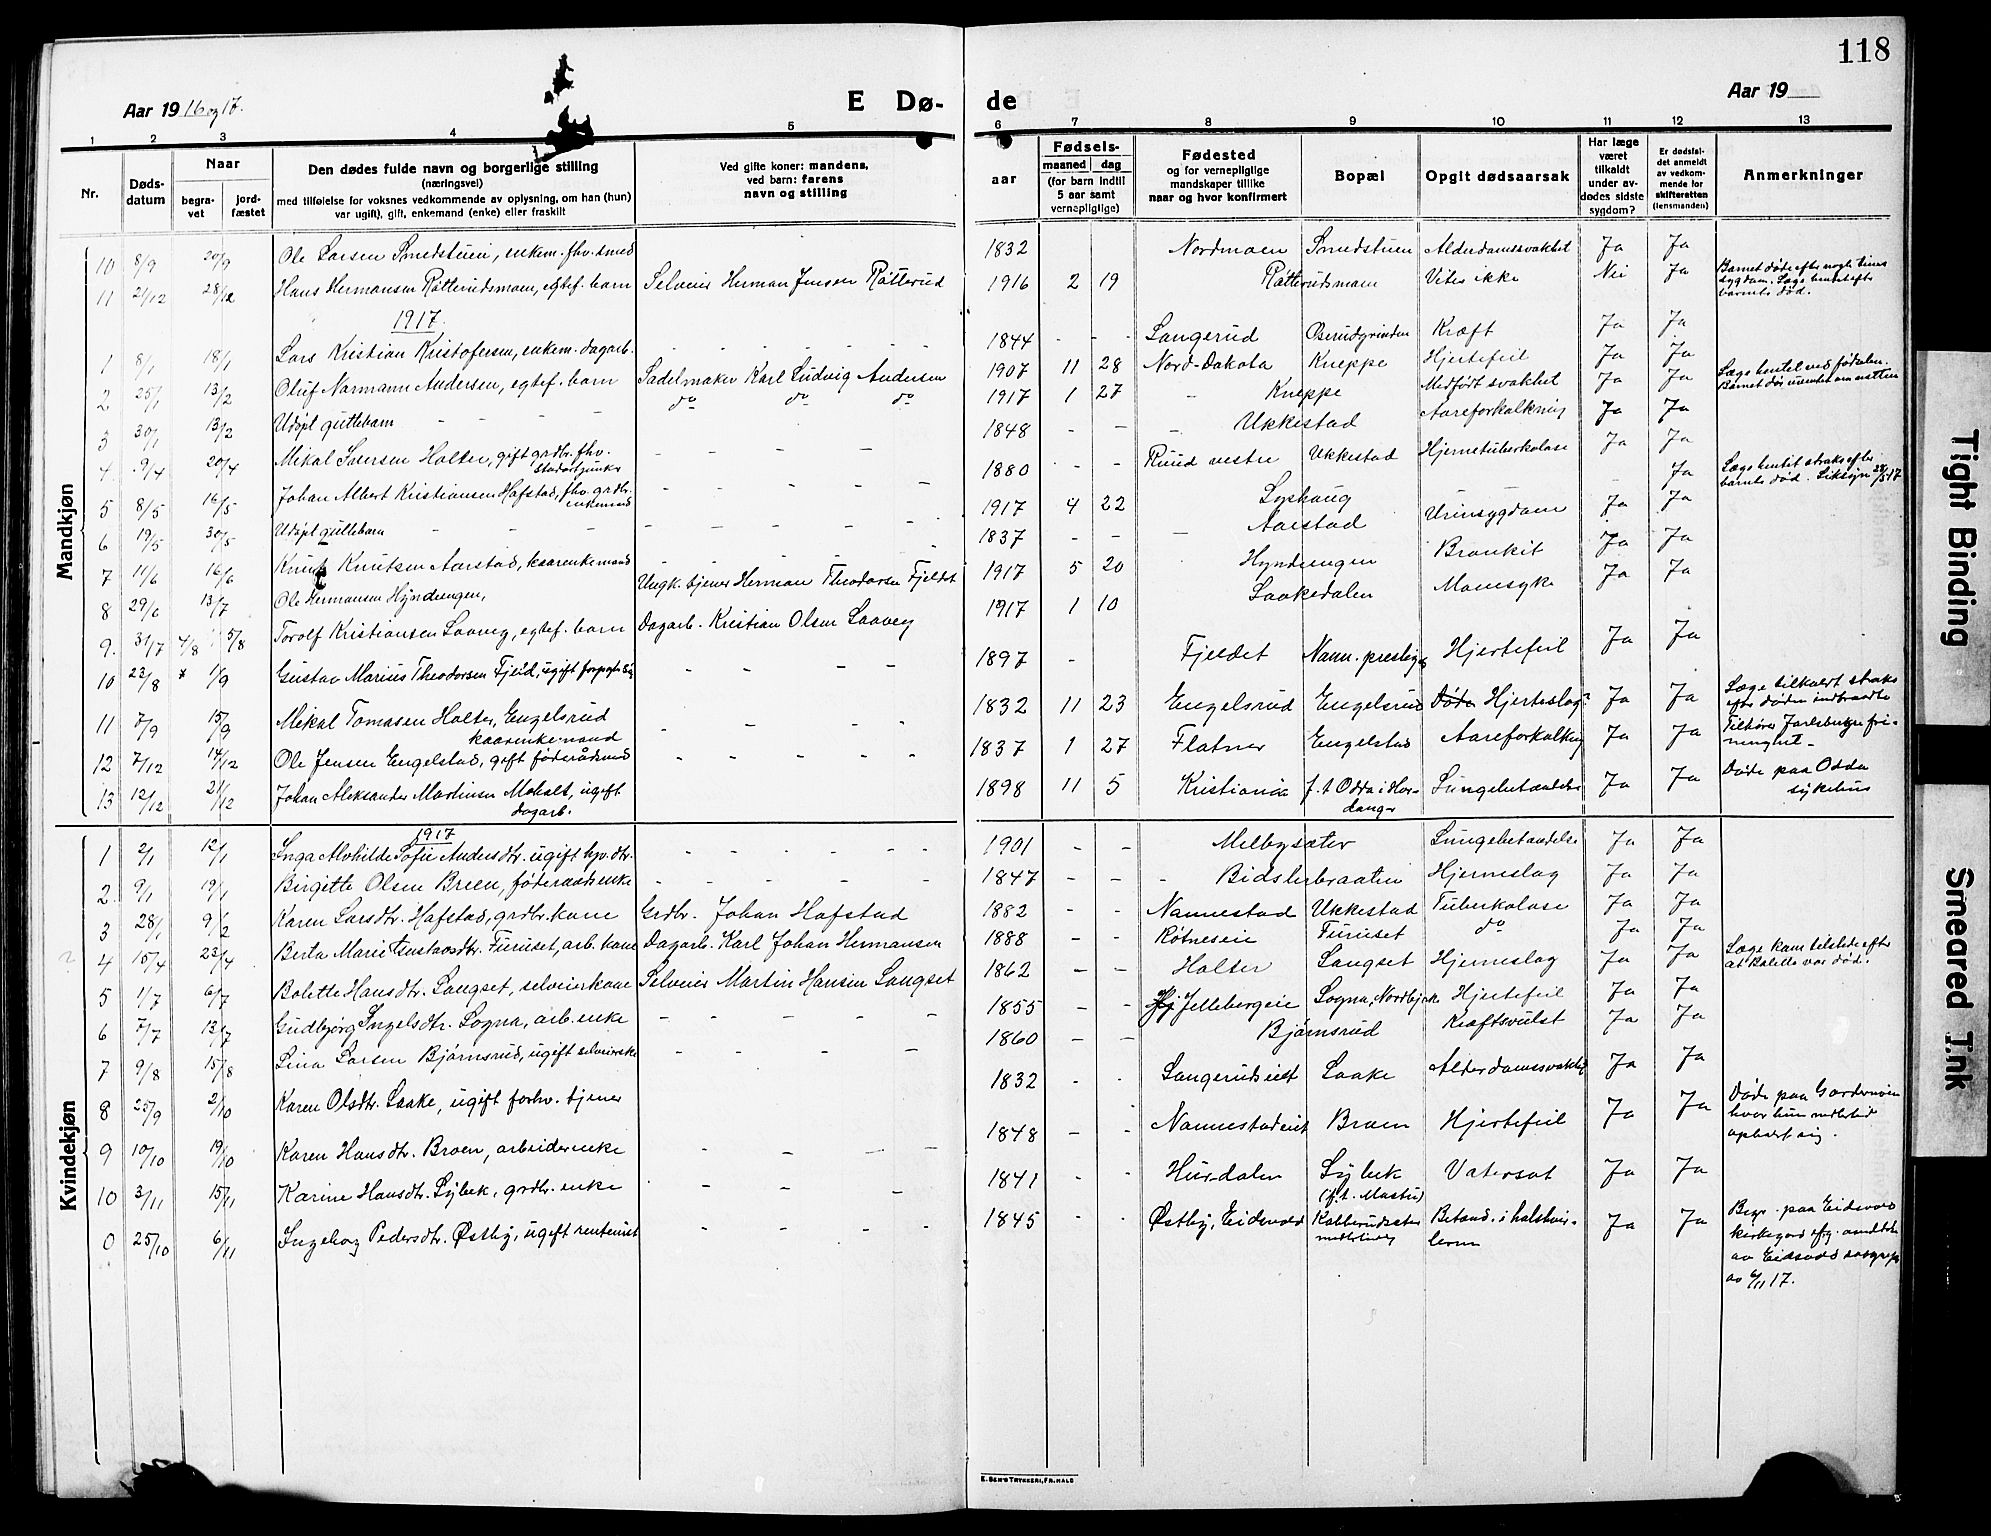 118
Aar 1916 og 17.
E Dø-
de
Aar 19
1 2 3 4 5 6 7 8 9 10 11 12 13
Nr.
Døds-
datum
Naar
begra-
vet
jord-
fæstet
Den dødes fulde navn og borgerlige stilling
(næringsvei)
med tilføielse for voksnes vedkommende av oplysning, om han (hun)
var ugift), gift, enkemand (enke) eller fraskilt
Ved gifte koner: mandens,
ved barn: farens
navn og stilling
aar
Fødsels-
maaned dag
(for barn indtil
5 aar samt
vernepligtige)
Fødested
og for vernepligtige
mandskaper tillike
naar og hvor konfirmert
Bopæl
Opgit dødsaarsak
Har læge
været
tilkaldt
under av-
dødes sidste
sygdom?
Er dødsfal-
det anmeldt
av vedkom-
mende for
skifteretten
(lensmanden)
Anmerkninger
Mandkjøn
10 8/9 20/9 Ole Larsen Smedstuen, enkem. fhv. smed 1832 Nordmoen Smedstuen Alderdomssvakhet Ja Ja
11 21/12 28/12 Hans Hermansen Rotterudsmoen, egtef. barn Selveier Herman Jensen Rotterud 1916 2 19 Rotterudsmoen Vites ikke Nei Ja Barnet døde efter nogle timers
sygdom. Læge hentet efter
barnets død.
1917.
1 8/1 18/1 Lars Kristian Kristofersen, enkem. dagarb. - - - - - 1844 - - Langerud Oserudgrinden Kræft Ja Ja
2 25/1 13/2 Oluf Normann Andersen, egtef. barn Sadelmaker Karl Ludvig Andersen 1907 11 28 Nord-Dakota Kneppe Hjertefeil Ja Ja
3 30/1 13/2 Udøpt guttebarn - - - do do do 1917 1 27 - Kneppe Medfødt svakhet Ja Ja Læge hentet ved fødselen.
Barnet døde uventet om natten
4 9/4 20/4 Mikal Iversen Holter, gift grdbr. fhv.
- - - - 1848 - - - Ukkestad Aareforkalkning Ja Ja
5 8/5 16/5 Johan Albert Kristiansen Hafstad, fhv. grdbr.
enkemand - - - - - 1880 - - Ruud vestre Ukkestad Hjernetuberkulose Ja Ja
6 19/5 30/5 Udøpt guttebarn - - - - - - - - 1917 4 22 Lyshaug - Ja Læge hentet straks efter
barnets død. Liksyn 22/5 17
7 11/6 16/6 Knut Knutsen Aarstad, kaarenkemand - - - - - 1837 - - - Aarstad Urinsygdom Ja Ja
8 29/6 13/7 Ole Hermansen Hyndeengen, Ungk. tjener Herman Theodorsen Fjeldet 1917 5 20 Hyndeengen Bronkit Ja Ja
9. 31/7 4/8 5/8 Torolf Kristiansen Laaveg, egtef. barn Dagarb. Kristian Olsen Laaveg 1917 1 10 Laakedalen Ja Ja
10 23/8 * 1/9 Gustav Marius Theodorsen Fjeld, ugift - - - - 1897 - Fjeldet Hjertefeil Ja Ja
11 7/9 15/9 Mikal Tomasen Holter, Engelsrud
kaarenkemand - - - - 1832 11 23 Engelsrud Engelsrud Døde Hjerteslag? Ja Ja Læge tilkaldt straks
efter døden indtraadte
12 7/12 14/12 Ole Jensen Engelstad, gift føderådsmand - - - - 1837 1 27 Flatner Engelstad Aareforkalkning Ja Ja Tilhører Jarlsberg fri-
menighet.
13 12/12 21/12 Johan Aleksander Martinsen Moholt, ugift
dagarb. 1898 11 5 Kristiania f. t. Odda i Har-
danger Lungebetændelse Ja Ja Døde paa Odda
sykehus
Kvindekjøn
1917
1 2/1 12/1 Inga Mohilde Sofie Andersdtr. ugift hjv. dtr. - - - - - 1901 - - Melbysæter Lungebetændelse Ja Ja
2. 9/1 19/1 Birgitte Olsen Breen, føderaadsenke - - - - - 1847 - - - Bidslerbraaten Hjerneslag Ja Ja
3 28/1 9/2 Karen Larsdtr. Hafstad, grdbr. kone Grdbr. Johan Hafstad 1882 - - Nannestad Ukkestad Tuberkulose Ja Ja
4 15/4 23/4 Berta Marie Gustavsdtr. Furuset, arb. kone Dagarb. Karl Johan Hermansen 1888 - - Røtneseie Furuset do Ja Ja
5 1/7 6/7 Bolette Hansdtr. Langset, selveierkone Selveier Martin Hansen Langset 1862 - - Holter Langset Hjerneslag Ja Ja Læge kom tilstede efter
at Bolette var død.
6 7/7 13/7 Gudbjørg Ingelsdtr. Logna, arb. enke - - - - - 1855 - - Jellebergeie Logna, Nordbyk Hjertefeil Ja Ja
7 9/8 15/8 Lina Larsen Bjørnsrud, ugift selveierske - - - - 1860 - - Bjørnsrud Kræftsvulst Ja Ja
8 25/9 2/10 Karen Olsdtr. Laake, ugift forhv. tjener 1832 - - Langerudseiet Laake Alderdomssvakhet Ja Ja
9 10/10 19/10 Karen Hansdtr. Braen, arbeiderenke - - - - 1848 - - Nannestadeiet Braen Hjertefeil Ja Ja Døde paa Gardermoen
hvor hun midlertid.
opholdt sig.
10 3/11 15/11 Karine Hansdtr. Lybek, grdbr. enke - - - 1841 - - Hurdalen Lybek
Vatersot Ja Ja
0 25/10 6/11 Ingeborg Pedersdtr. Østby, ugift rentenist - - - - 1845 - - Østby, Eidsvold
midlertidig Betænd. i halshvir-
lerne Ja Ja Begr. paa Eidsvold
kirkegaard efter anmeldelse
av Eidsvold sogneprest
av 6/11 17.
E. SEM'S TRYKKERI, FR.HALD
Tight Binding
Smeared Ink